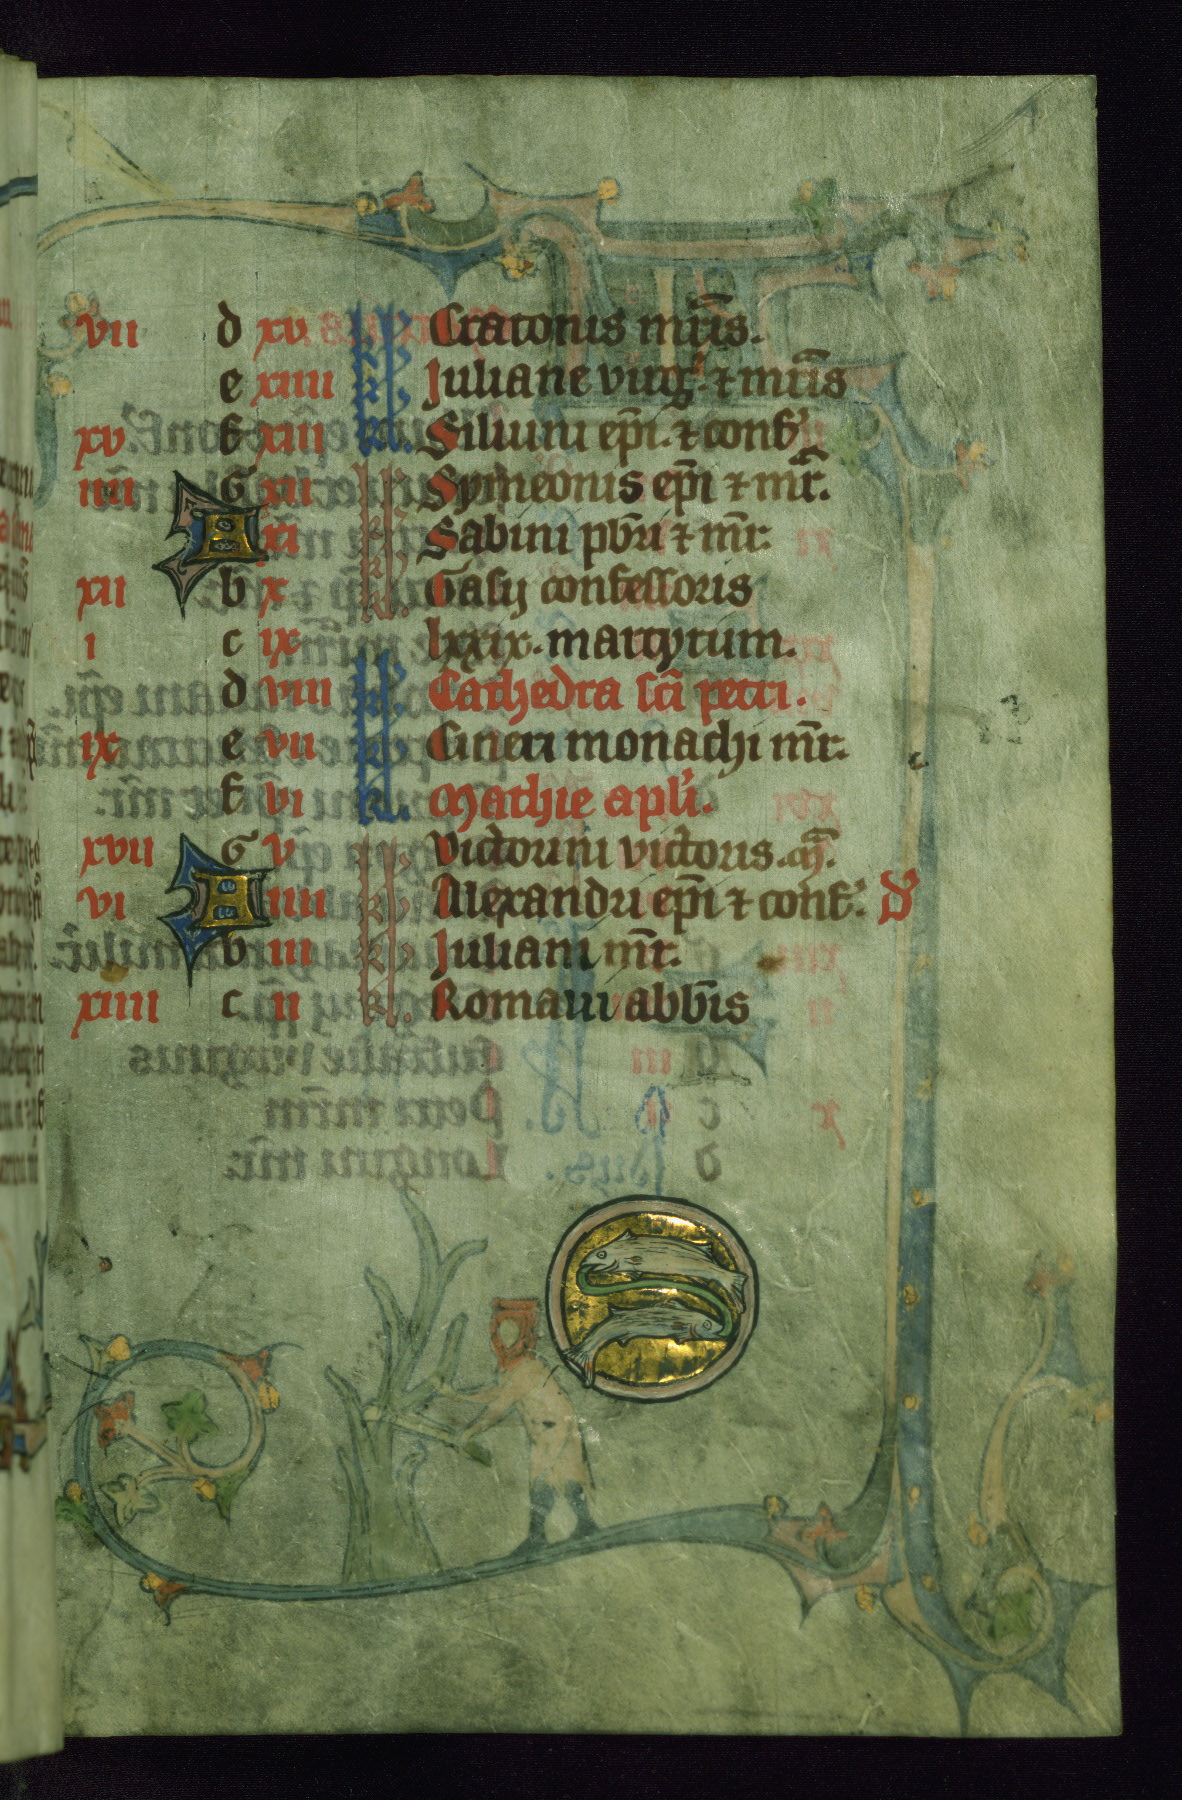 vii d xv kl. Cratonis mr̄is.
e xiiii kl. Juliane virg. ⁊ mr̄is
xv f xiii kl. Silvini ep̄i. ⁊ conf.
iiii G xii kl. Symeonis ep̄i ⁊ mr̄.
A xi kl. Sabini pb̄ri ⁊ mr̄.
xii b x kl. Gasij confessoris
i c ix kl. lxxix. martyrum.
d viii kl. Cathedra sc̄i petri.
ix e vii kl. Cineri monachi mr̄.
f vi kl. Mathie apl'i.
xvii G v kl. Victorini victoris. m̄.
vi A iiii kl. Alexandri ep̄i ⁊ conf.
b iii kl. Juliani mr̄.
xiiii c ii kl. Romani abb̄is